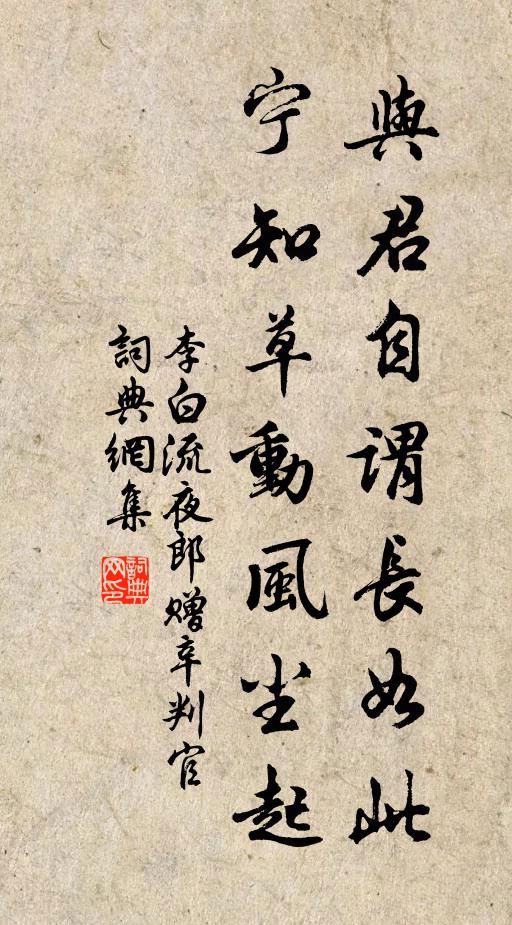 與君自謂長如此
宁知草動風尘起
李白流夜郎赠辛判官
詞典網集
詞典
网印